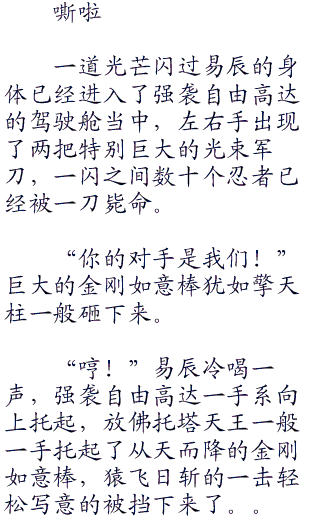 嘶啦
一道光芒闪过易辰的身
体已经进入了强袭自由高达
的驾驶舱当中，左右手出现
了两把特别巨大的光束军
刀，一闪之间数十个忍者已
经被一刀毙命。
“你的对手是我们！”
巨大的金刚如意棒犹如擎天
柱一般砸下来。
“哼！”易辰冷喝一
声，强袭自由高达一手系向
上托起，放佛托塔天王一般
一手托起了从天而降的金刚
如意棒，猿飞日斩的一击轻
松写意的被挡下来了。。